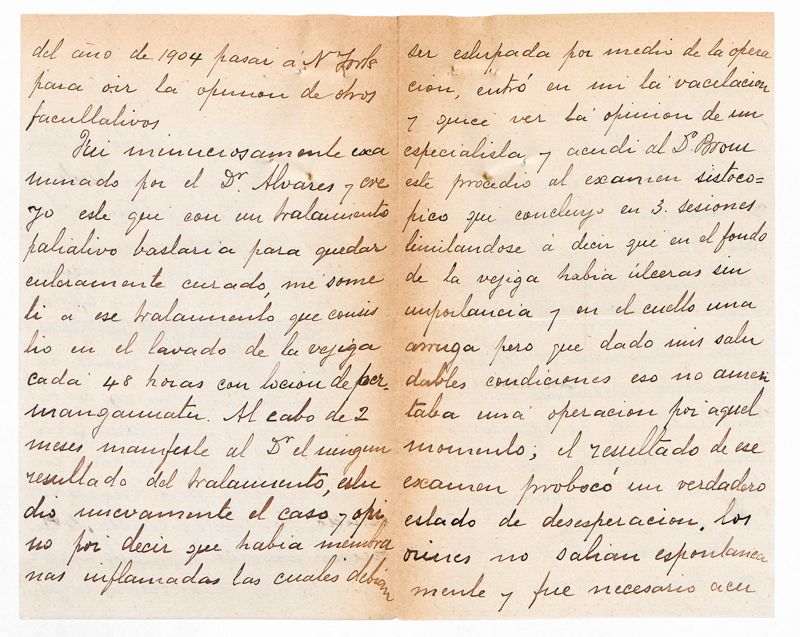 del año de 1904 pasar á N York
para oir la opinion de otros
facultativos
Fui minuciosamente exa
minado por el Dr Alvares y cre
yo este que con un tratamiento
paliativo bastaria para quedar
enteramente curado, me some
ti a ese tratamiento que consis
tio en el lavado de la vejiga
cada 48 horas con locion de per-
manganato. Al cabo de 2
meses manifeste al Dr el ningun
resultado del tratamiento, estu
dio nuevamente el caso y opi
no por decir que habia membra
nas inflamadas las cuales debian
ser estirpada por medio de la opera
cion, entró en mi la vacilacion
y quice ver la opinion de un
especialista y acudi al Dr Brown
este procedio al examen sistoco=
pico que concluyo en 3. sesiones
limitandose á decir que en el fondo
de la vejiga habia úlceras sin
importancia y en el cuello una
arruga pero que dado mis salu
dables condiciones eso no ameri
taba una operacion por aquel
momento; el resultado de ese
examen probocó un verdadero
estado de desesperacion, los
orines no salian espontanea
mente y fue necesario acu